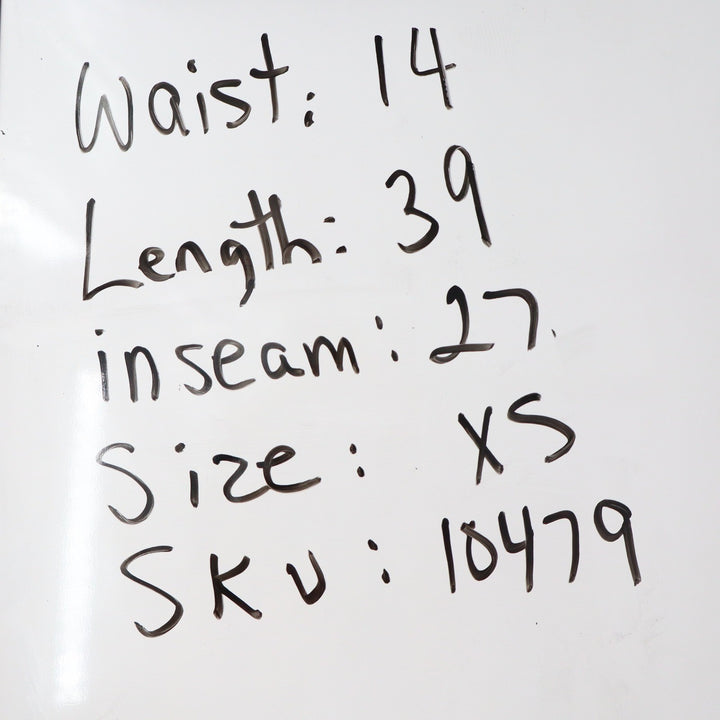 Waist: 14
Length: 39
inseam: 27.
Size: XS
SKU: 10479